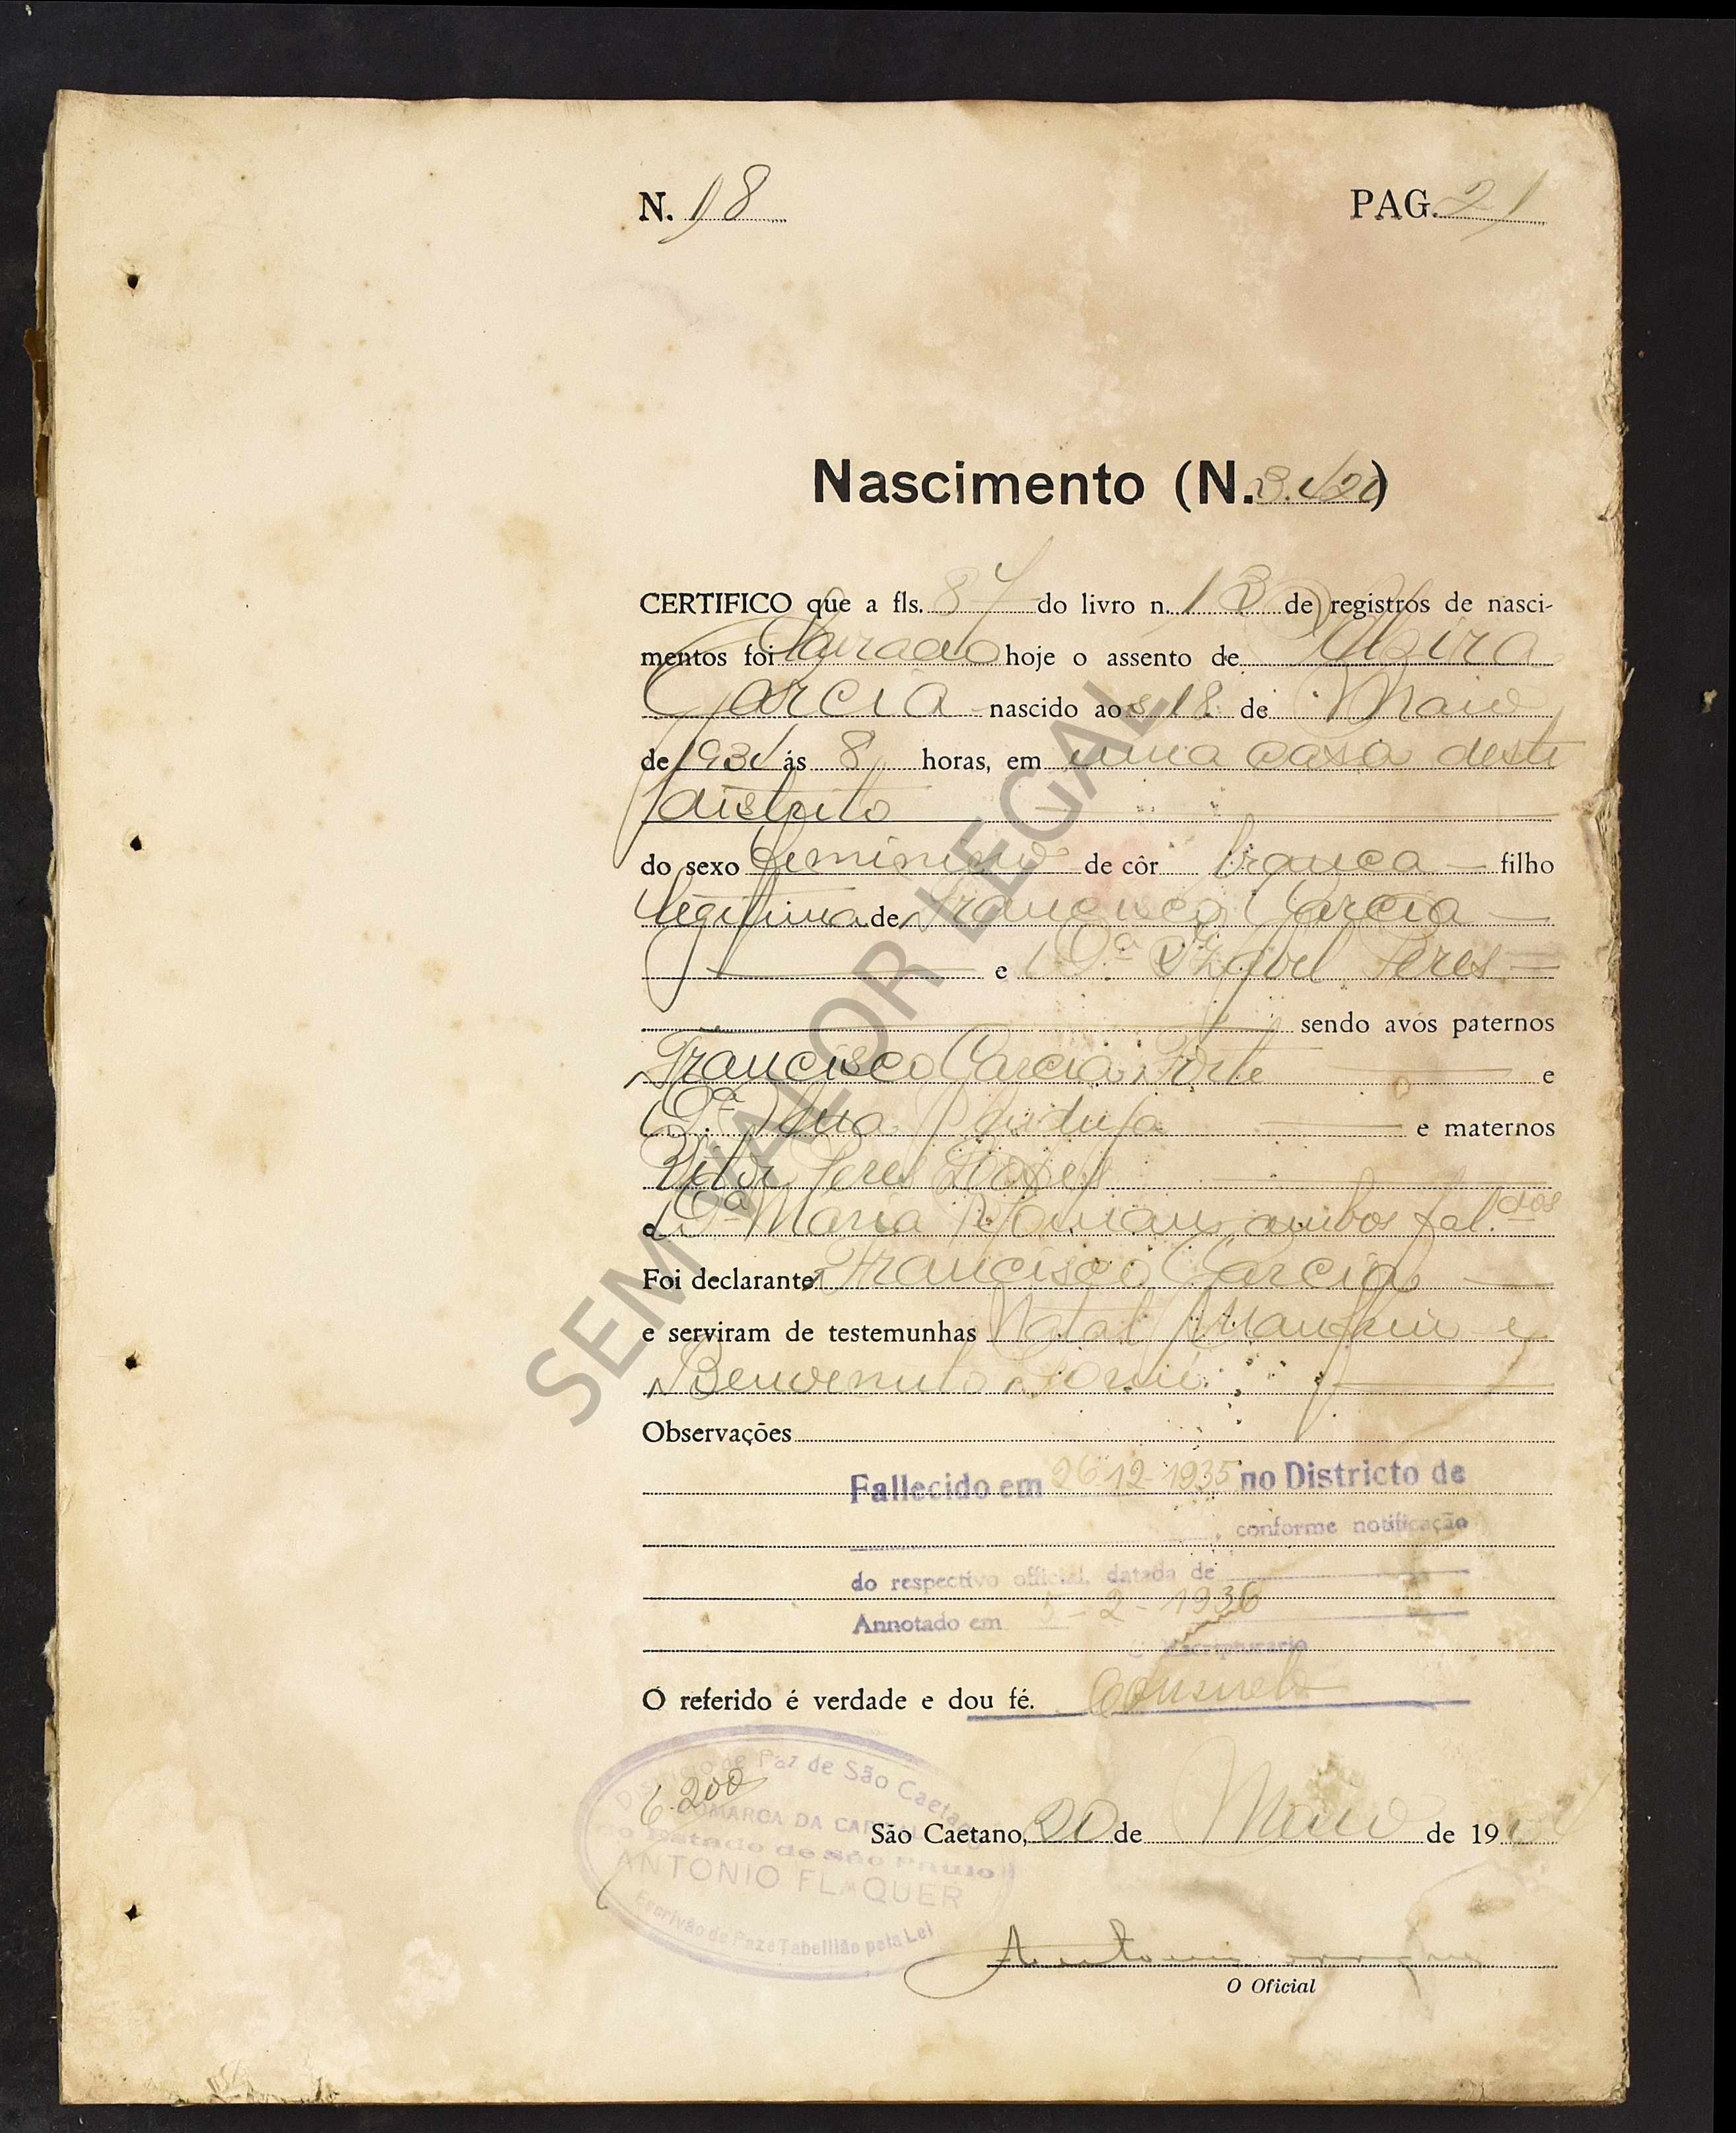 N. 18 PAG. 21
Nascimento (N. 3.420)
CERTIFICO que a fls. 87 do livro n. 13 de registros de nasci-
mentos foi lavrado hoje o assento de Alzira
Garcia nascido aos 18 de Maio
de 1931 ás 8 horas, em uma casa deste
districto
do sexo feminino de côr branca filho
legitima de Francisco Garcia
e Dª Izabel Peres
sendo avós paternos
Francisco Garcia Forte e
Dª Anna e maternos
Peres
e Dª Maria Roman, ambos fal.dos
Foi declarante Francisco Garcia
e serviram de testemunhas Natal e
Benvenuto
Observações
Fallecido em 26-12-1935 no Districto de
, conforme notificação
do respectivo official, datada de
Annotado em 5-2-1936
O Escripturario
O referido é verdade e dou fé.
Districto de Paz de São Caetano
COMARCA DA CAPITAL
do Estado de São Paulo
ANTONIO FLAQUER
Escrivão de Paz e Tabellião pela Lei
6.200
São Caetano, 20 de Maio de 19
Antonio
O Oficial
SEM VALOR LEGAL